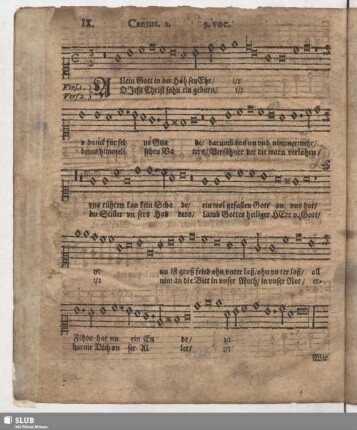 IX. Cantus. 2. 5. voc.
Vers. 1. Allein Gott in der Höh sey Ehr/ ij:
Vers. 3. O Jesu Christ sohn ein geborn/ ij:
v danck für sei ne Gna de/ darumb das nu und nimmermehr/
deins himmli schen Va ters/ Versöhner der die warn verlohrn/
vns rühren kan kein Scha de/ ein wol gefallen Gott an vns hat/
du Stiller vnsers Had ders/ Lamb Gottes heiliger HErr v. Gott/
ij: nu ist groß fried ohn vnter laß/ ohn vnter laß/ all
ij: nim an die Bitt in vnser Noth/ in vnser Not/ er-
Fehde hat nu ein En de/ ij:
barme Dich vn ser Al ler/ ij:
Wir
SLUB